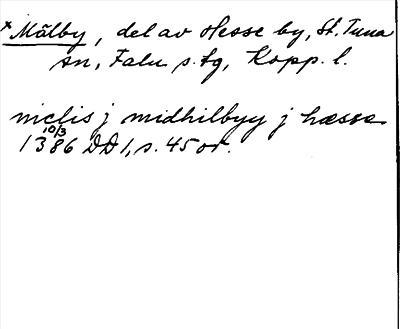 * Mälby, del av Hesse by, St. Tuna
sn, Falu s. tg, Kopp. l.
niclis j midhilbyy j hæsse
10/3
1386 DD 1, s. 45 or.